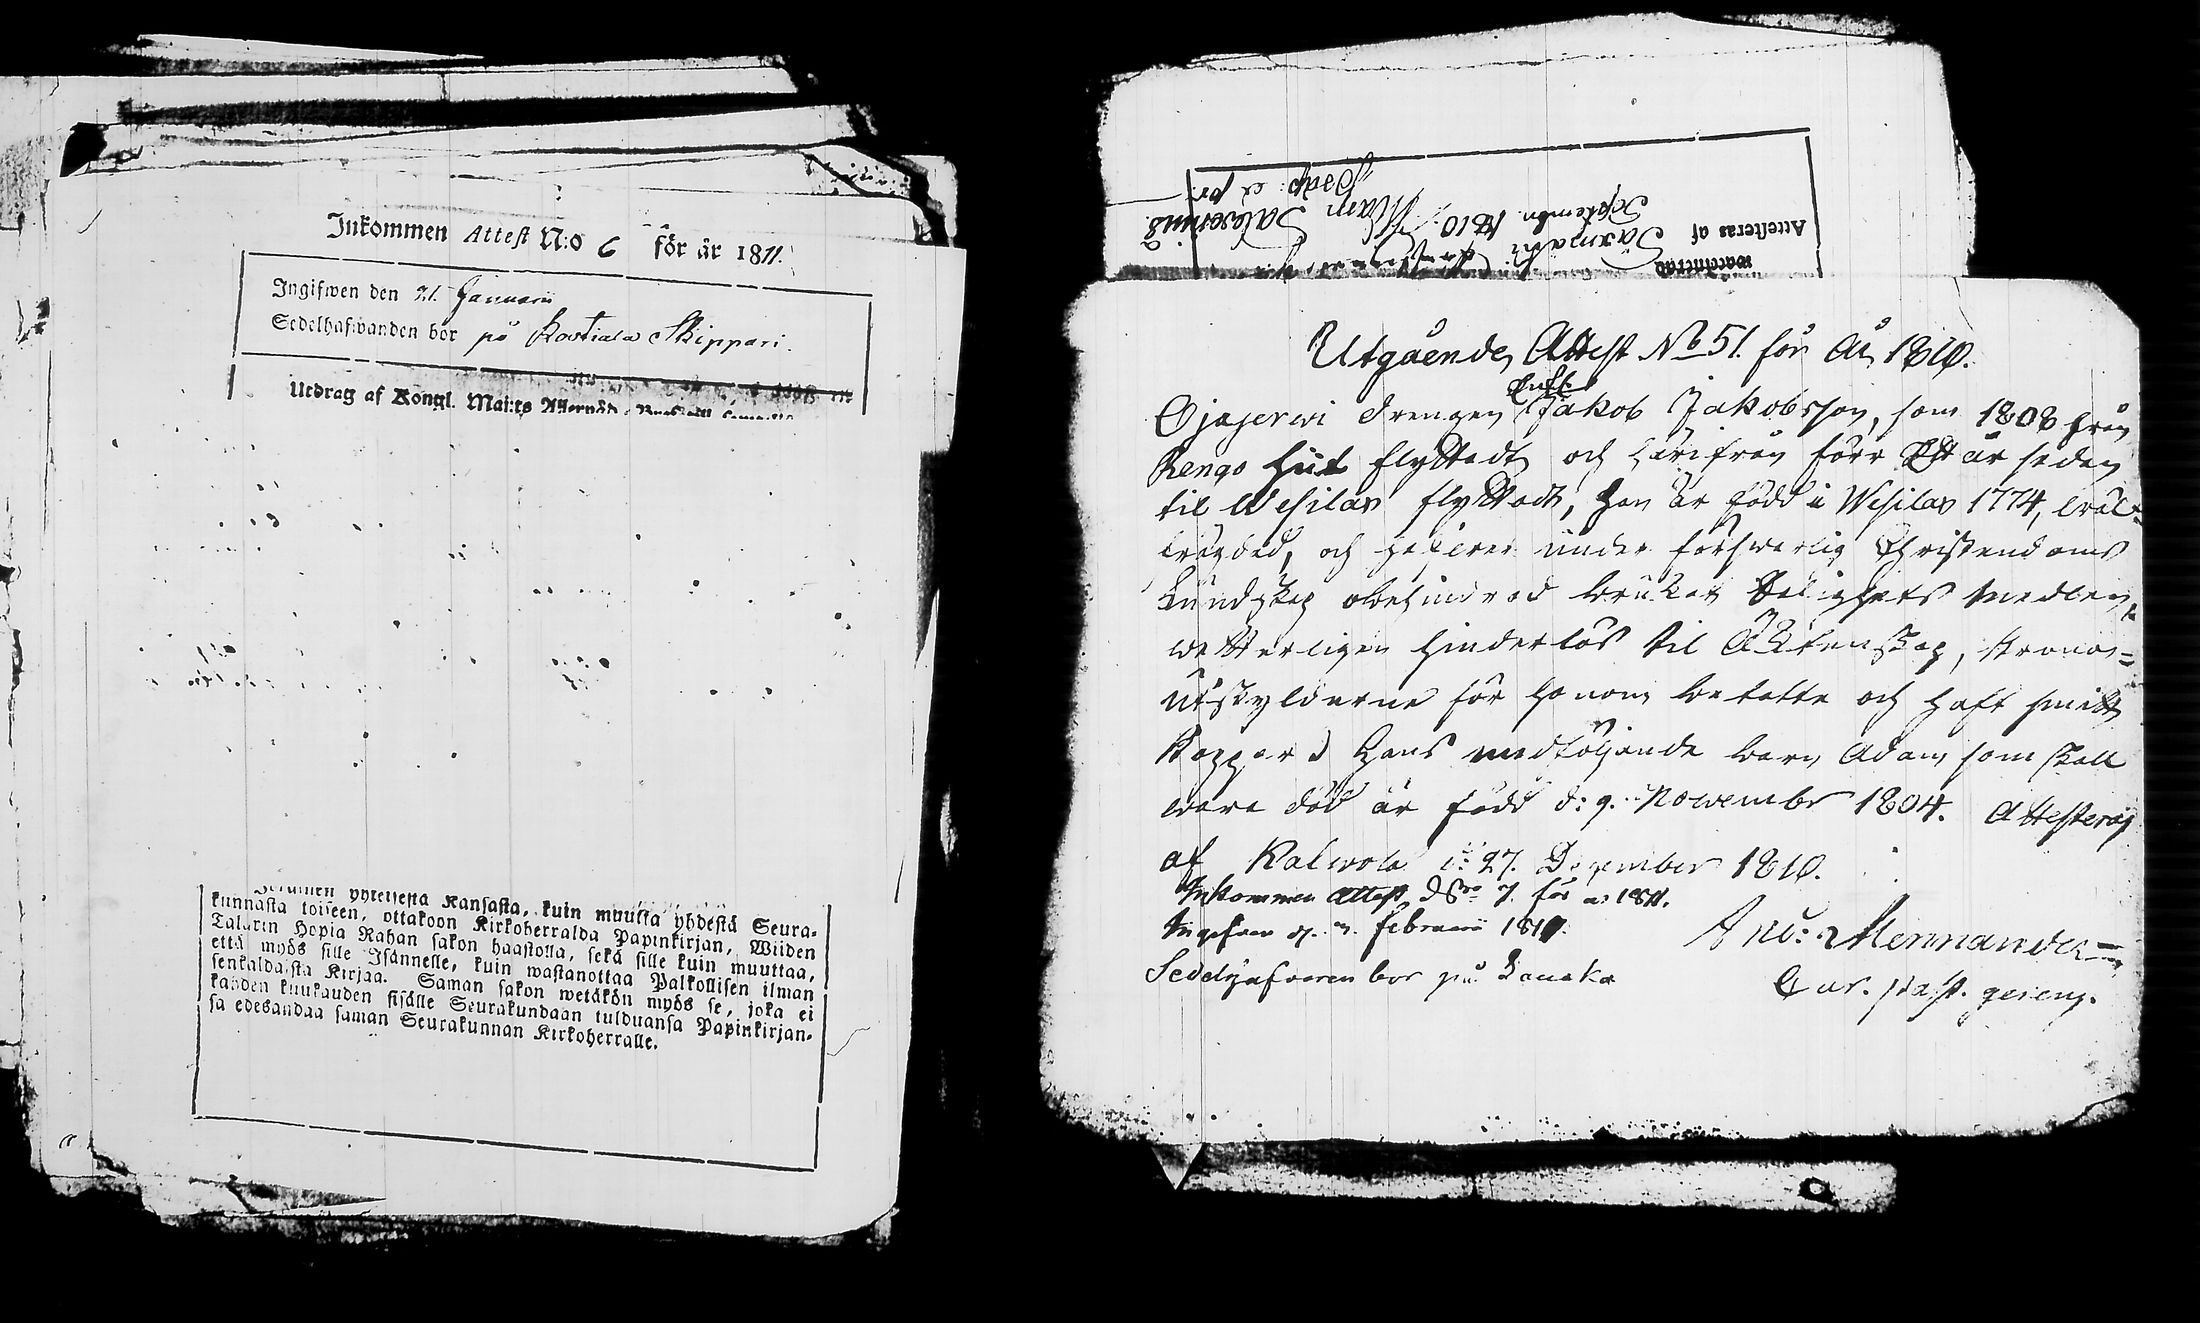 Inkommen Attest N:o 6 för år 1811.
Ingifwen den 21. Januarii
Sedelhafwanden bor på Rastiala Skippari.
Utdrag af Kongl. Maj:ts
yhteisestä Kansasta, kuin muulla yhdestä Seura-
kunnasta toiseen, ottakoon Kirkoherralda Papinkirjan, Wiiden
Talarin Hopia Rahan sakon haastolla, sekä sille kuin muuttaa,
että myös sille Isännelle, kuin wastanottaa Palkollisen ilman
senkaldaista Kirjaa. Saman sakon wetäkön myös se, joka ei
kahden kuukauden sisälle Seurakundaan tulduansa Papinkirjan-
sa edesandaa saman Seurakunnan Kirkoherralle.
Attesteras af
Saxmäki
September 1810.
Utgående Attest No 51. för År 1810.
Enkl.
Ojajerwi Drengen Jakob Jakobsson, som 1808 från
Rengo hit flyttadt och härifrån förr ett år sedan
til Wesilax flyttadt, han är född i Wesilax 1774, wäl
och under förswarlig Christendoms
Kundskap obehindrad brukar Salighets medlen,
wetterligen hinderlös til Äktenskap, Kronos=
utskylderne för honom betalte och haft smitt
Koppor. Hans medföljande barn Adam som skall
wara död är född d: 9. Nowember 1804. Attesteras
af Kalwola d: 27. December 1810.
Inkommen Attest No 7. för år 1811.
Februarii 1811.
Sedelhafwaren bor på
And: Mennander
Cur. past. gerens.